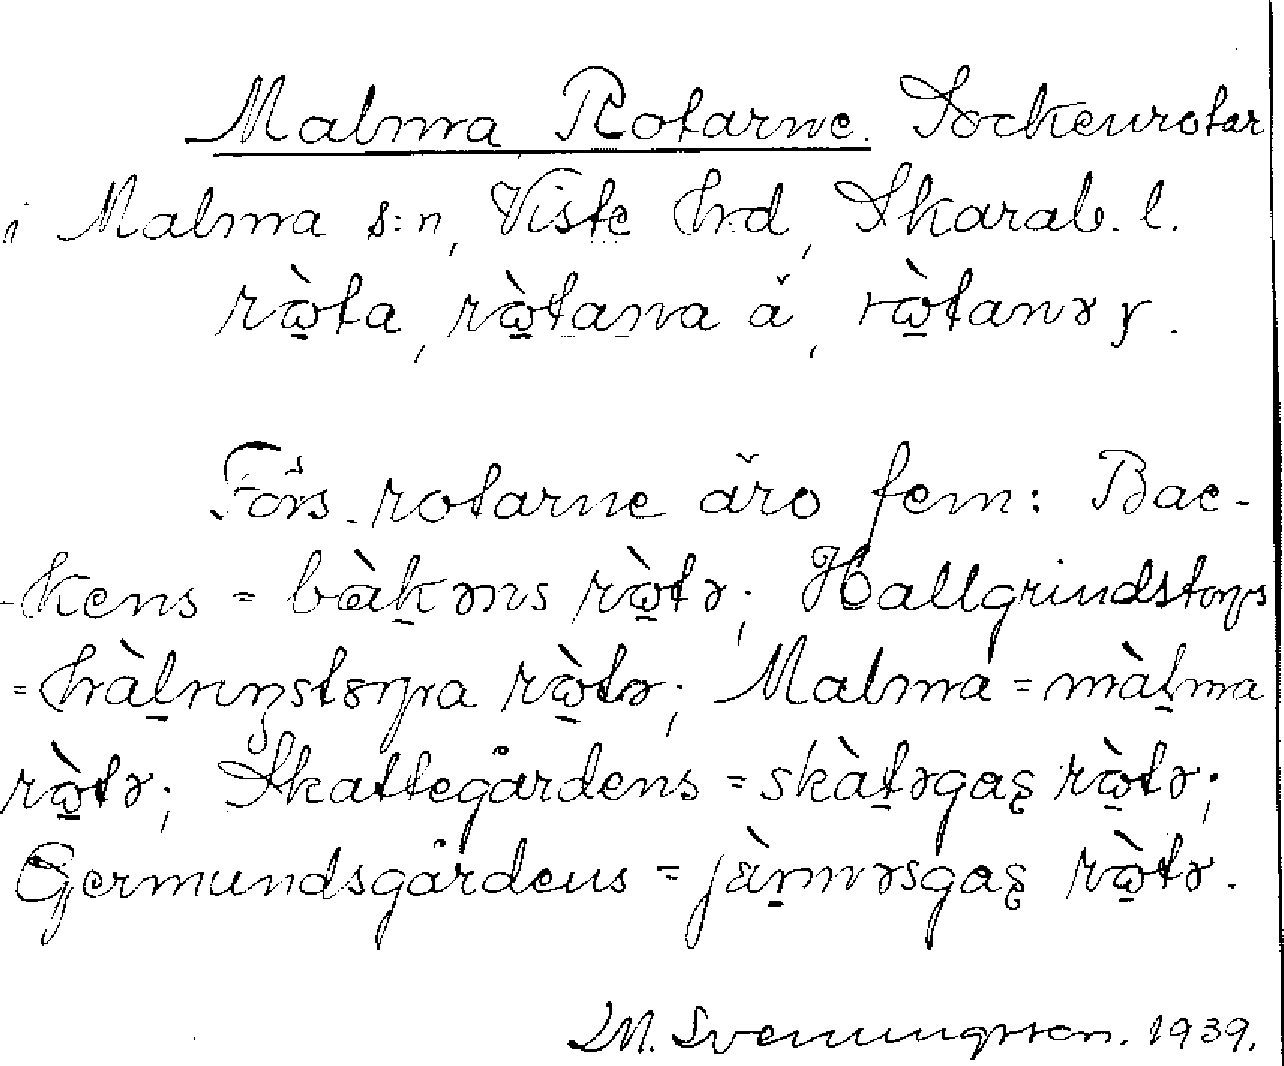 Malma Rotarne. Sockenrotar
i Malma s:n, Viste hrd, Skarab. l.
rò̱ta, rò̱tana ǎ, rò̱tanər.
Förs. rotarne äro fem: Bac-
-kens = bàkəns rò̱tə; Hallgrindstorps
= hàlrinstorpa rò̱tə; Malma = màlma
rò̱tə; Skattegårdens = skàtəgas rò̱tə;
Germundsgårdens = jàrməsgas rò̱tə.
M. Svenungsson. 1939.